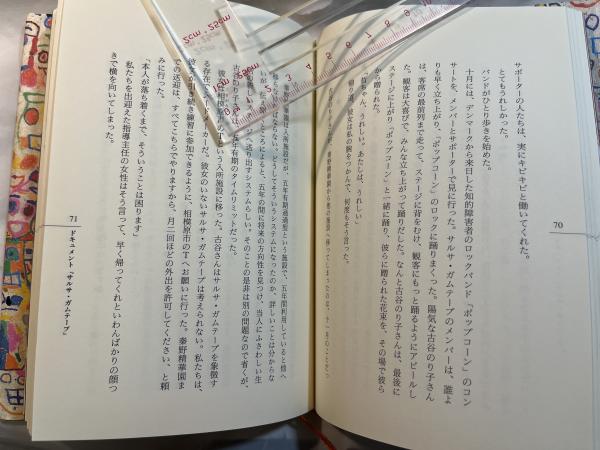 サポーターの人たちは、実にキビキビと働いてくれた。
とてもうれしかった。
バンドがひとり歩きを始めた。
十月には、デンマークから来日した知的障害者のロックバンド「ポップコーン」のコン
サートを、メンバーとサポーターで見に行った。サルサ・ガムテープのメンバーは、誰よ
りも早く立ち上がり、「ポップコーン」のロックに踊りまくった。陽気な古谷のり子さん
は、客席の最前列まで走って、ステージに背をむけ、観客にもっと踊るようにアピールし
た。観客は大喜びで、みんな立ち上がって踊りだした。なんと古谷のり子さんは、最後に
ステージに上がり、「ポップコーン」と一緒に踊り、彼らに贈られた花束を、その場で彼ら
から贈られた。
うれしい。あたしは、うれしい」
彼女は私の腕をつかんで、何度もそう言った。
秦野精華園から他の施設へ移ってしまったのは、
70
は入所施設だが、五年有期通過型という施設で、五年間利用していると他へ
ならない。どうしてそういうシステムになったのか、詳しいことは分からな
いが、伝え聞くところによると、五年の間に将来の方向性を見つけ、当人にふさわしい生
送り出すシステムらしい。そのことの是非は別の問題なので省くが、
古谷のり子さんも、五年有期のタイムリミットだった。
彼女は相模原市のTという入所施設に移った。古谷さんはサルサ・ガムテープを象徴す
る存在でムードメーカーだ。彼女のいないサルサ・ガムテープは考えられない。私たちは、
彼女が引き続き練習に参加できるように、相模原市のTへお願いに行った。秦野精華園ま
での送迎は、すべてこちらでやりますから、月二回ほどの外出を許可してください、と頼
みに行った。
「本人が落ち着くまで、そういうことは困ります」
私たちを出迎えた指導主任の女性はそう言って、早く帰ってくれといわんばかりの顔つ
きで横を向いてしまった。
71 ドキュメント「サルサ・ガムテープ」